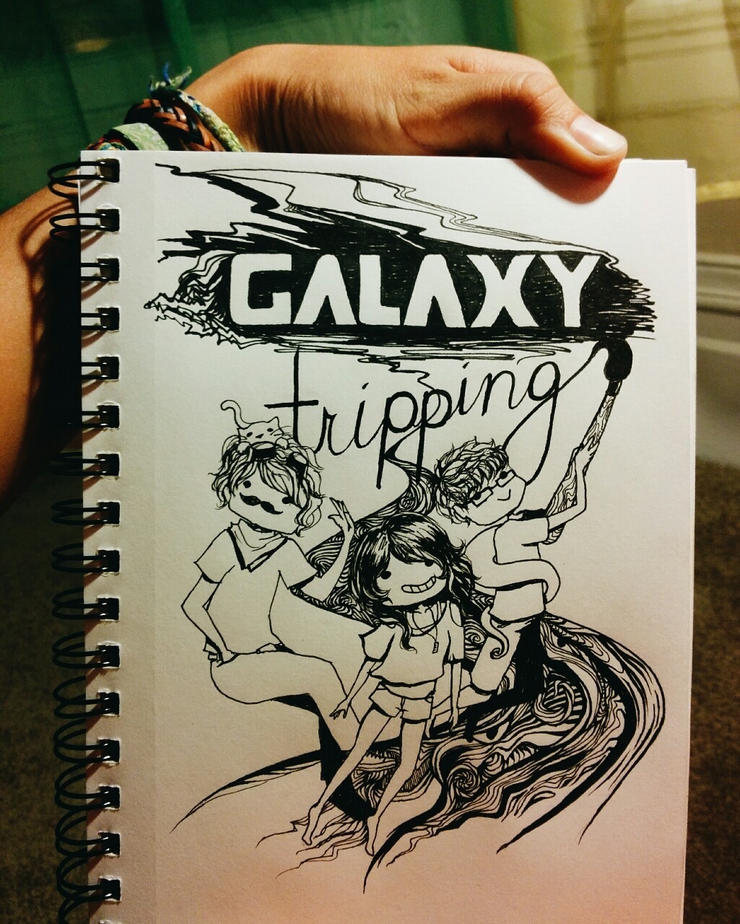 GALAXY
tripping